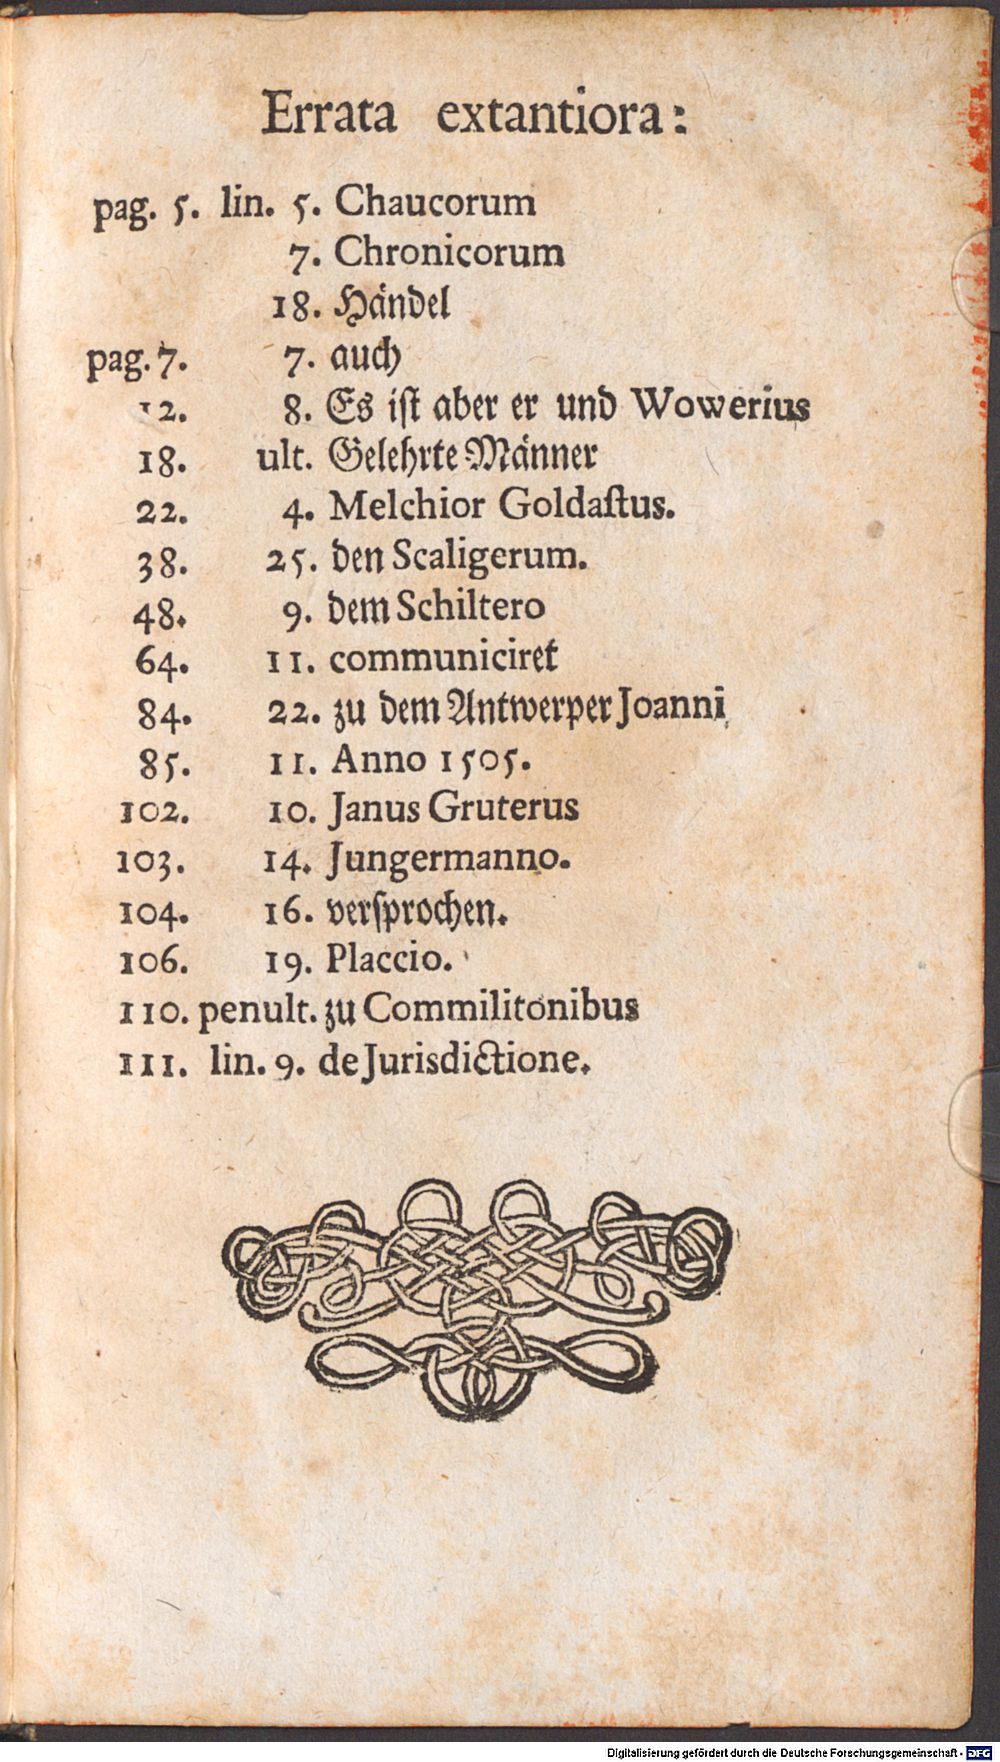 Errata extantiora:
pag. 5. lin. 5. Chaucorum
7. Chronicorum
18. Händel
pag. 7. 7. auch
12. 8. Es iſt aber er und Wowerius
18. ult. Gelehrte Männer
22. 4. Melchior Goldaſtus.
38. 25. den Scaligerum.
48. 9. dem Schiltero
64. 11. communiciret
84. 22. zu dem Antwerper Joanni
85. 11. Anno 1505.
102. 10. Janus Gruterus
103. 14. Jungermanno.
104. 16. verſprochen.
106. 19. Placcio.
110. penult. zu Commilitonibus
111. lin. 9. de Jurisdictione.
Digitalisierung gefördert durch die Deutsche Forschungsgemeinschaft - DFG